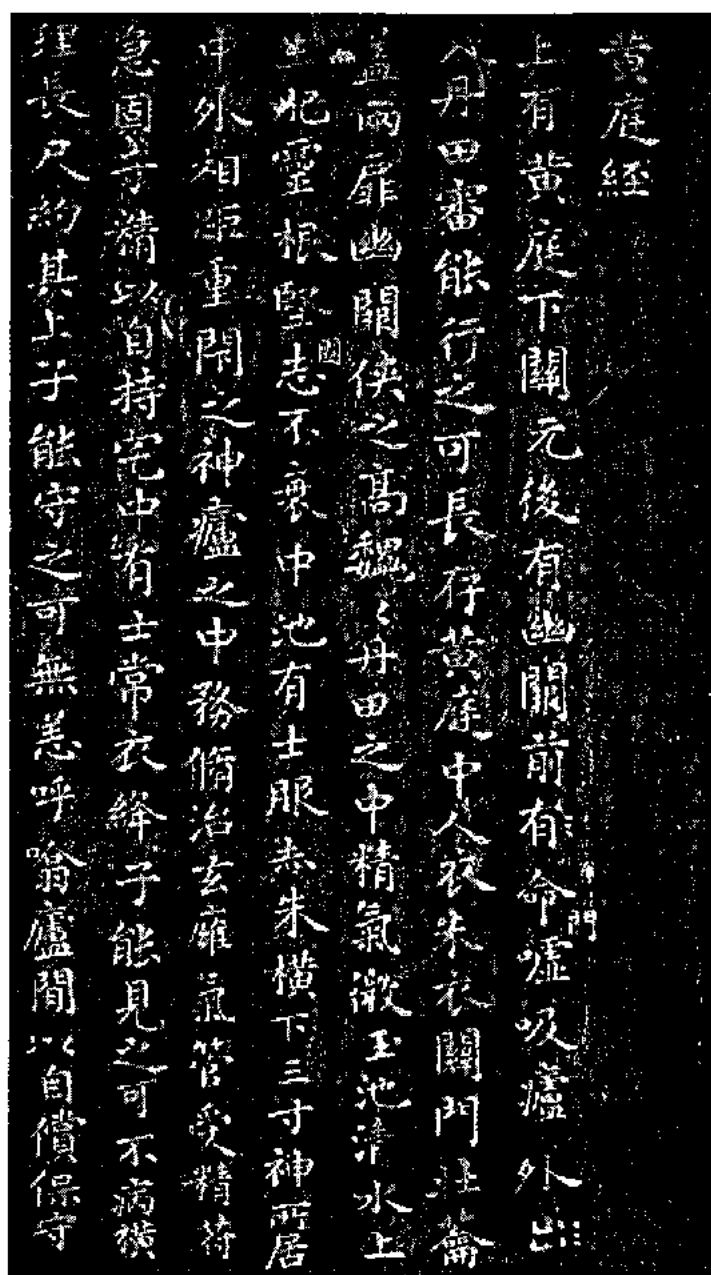 黄庭經
上有黄庭下關元後有幽關前有命門噓吸廬外出
入丹田審能行之可長存黄庭中人衣朱衣關門壯籥
蓋兩扉幽關俠之高魏〻丹田之中精氣微玉池清水上
生肥靈根堅固志不衰中池有士服赤朱橫下三寸神所居
中外相距重閉之神廬之中務脩治玄廱氣管受精符
急固子精以自持宅中有士常衣絳子能見之可不病橫
理長尺約其上子能守之可無恙呼噏廬間以自償保守